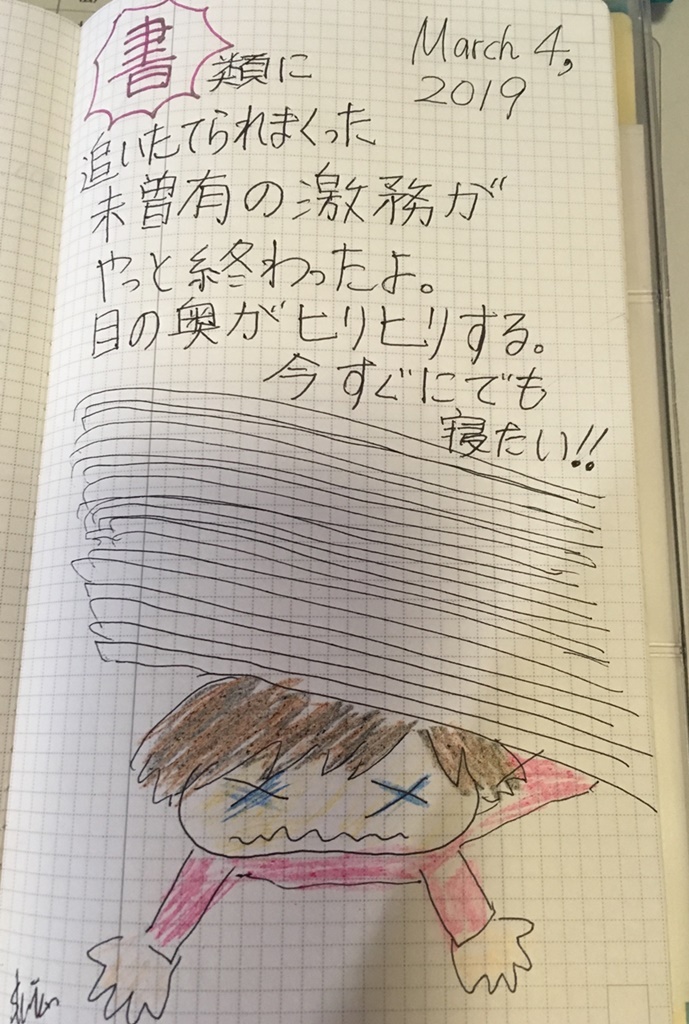 March 4,
2019
書類に
追いたてられまくった
未曽有の激務が
やっと終わったよ。
目の奥がヒリヒリする。
今すぐにでも
寝たい!!